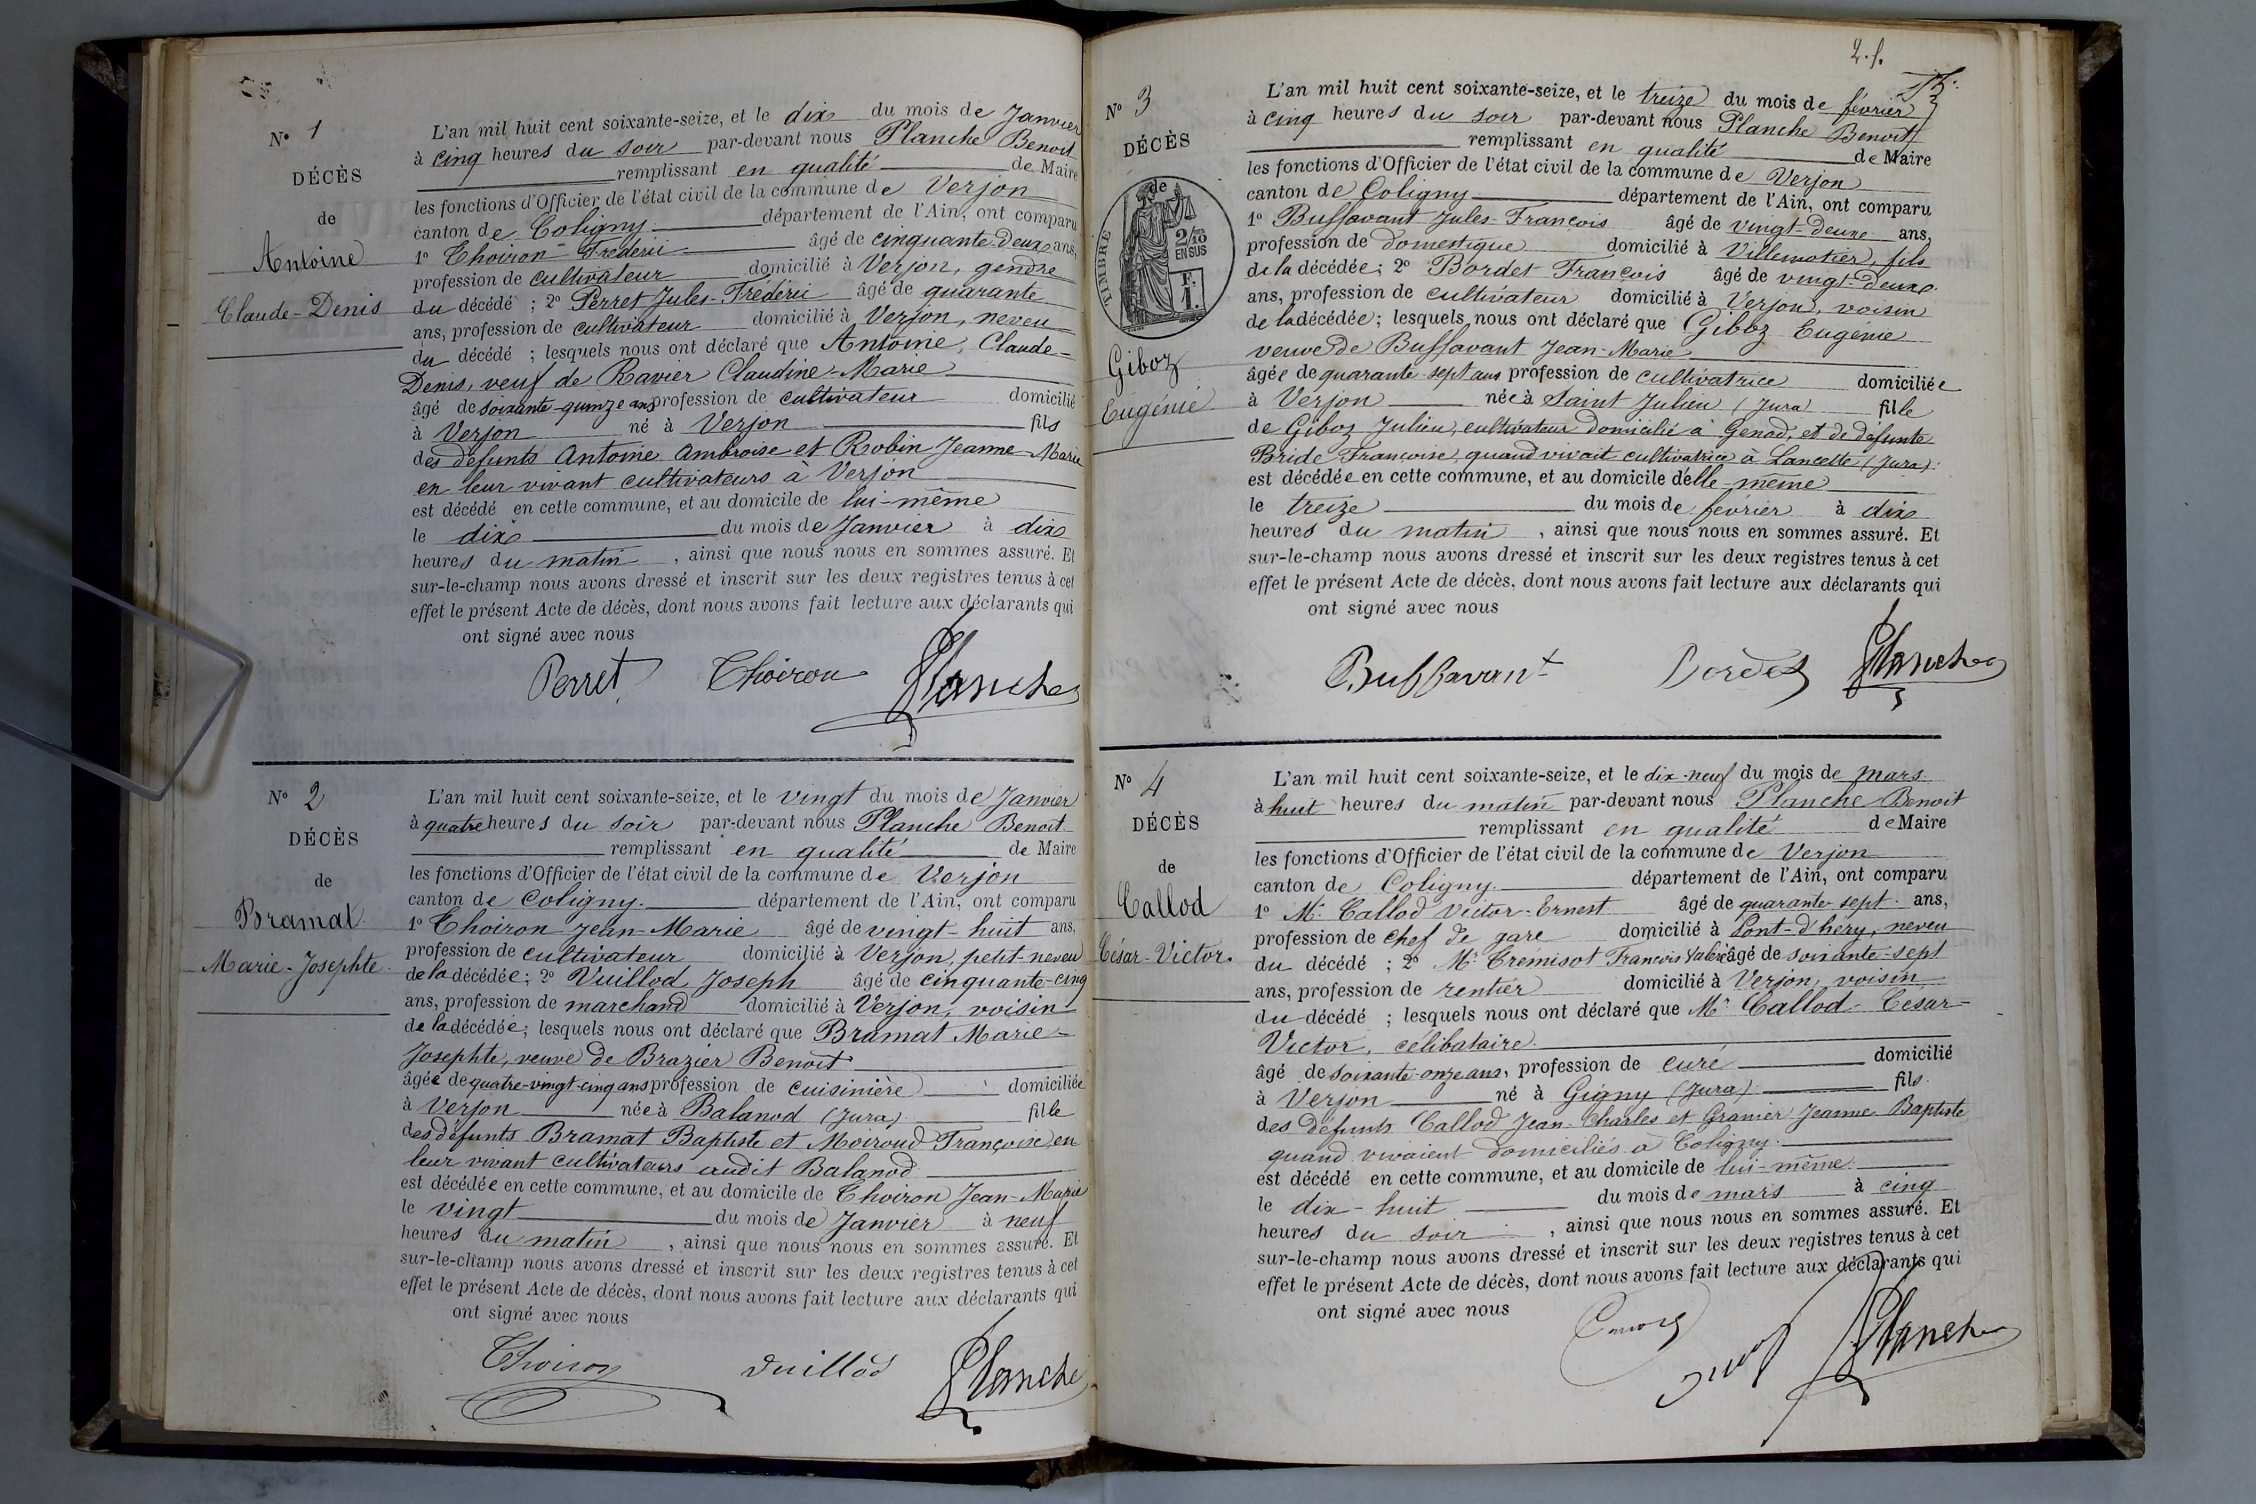 N° 1
DÉCÈS
de
Antoine
Claude-Denis
L'an mil huit cent soixante-seize, et le dix du mois de Janvier
à cinq heures du soir par-devant nous Planche Benoit
remplissant en qualité de Maire
les fonctions d'Officier de l'état civil de la commune de Verjon
canton de Coligny département de l'Ain, ont comparu
1° Thoiron Frédéric âgé de cinquante-deux ans,
profession de cultivateur domicilié à Verjon, gendre
du décédé ; 2° Perret Jules-Frédéric âgé de quarante
ans, profession de cultivateur domicilié à Verjon, neveu
du décédé ; lesquels nous ont déclaré que Antoine, Claude-
Denis, veuf de Ravier Claudine-Marie
âgé de soixante-quinze ans profession de cultivateur domicilié
à Verjon né à Verjon fils
des défunts Antoine Ambroise et Robin Jeanne-Marie
en leur vivant cultivateurs à Verjon
est décédé en cette commune, et au domicile de lui-même
le dix du mois de Janvier à dix
heures du matin, ainsi que nous nous en sommes assuré. Et
sur-le-champ nous avons dressé et inscrit sur les deux registres tenus à cet
effet le présent Acte de décès, dont nous avons fait lecture aux déclarants qui
ont signé avec nous
Perret Thoiron Planche
N° 2
DÉCÈS
de
Bramat
Marie-Josephte
L'an mil huit cent soixante-seize, et le vingt du mois de Janvier
à quatre heures du soir par-devant nous Planche Benoit
remplissant en qualité de Maire
les fonctions d'Officier de l'état civil de la commune de Verjon
canton de Coligny. département de l'Ain, ont comparu
1° Thoiron Jean-Marie âgé de vingt-huit ans,
profession de cultivateur domicilié à Verjon, petit-neveu
de la décédée; 2° Vuillod Joseph âgé de cinquante-cinq
ans, profession de marchand domicilié à Verjon, voisin
de la décédée; lesquels nous ont déclaré que Bramat Marie-
Josephte, veuve de Brazier Benoit
âgée de quatre-vingt-cinq ans profession de cuisinière domiciliée
à Verjon née à Balanod (Jura) fille
des défunts Bramat Baptiste et Moiroud Françoise en
leur vivant cultivateurs audit Balanod
est décédée en cette commune, et au domicile de Thoiron Jean-Marie
le vingt du mois de Janvier à neuf
heures du matin, ainsi que nous nous en sommes assuré. Et
sur-le-champ nous avons dressé et inscrit sur les deux registres tenus à cet
effet le présent Acte de décès, dont nous avons fait lecture aux déclarants qui
ont signé avec nous
Thoiron Vuillod Planche
2.f.
N° 3
DÉCÈS
de
TIMBRE
2/10
EN SUS
F.
1.
Giboz
Eugénie
L'an mil huit cent soixante-seize, et le treize du mois de février
à cinq heures du soir par-devant nous Planche Benoit
remplissant en qualité de Maire
les fonctions d'Officier de l'état civil de la commune de Verjon
canton de Coligny département de l'Ain, ont comparu
1° Buffavant Jules-François âgé de vingt-deux ans,
profession de domestique domicilié à Villemotier, fils
de la décédée; 2° Bordet François âgé de vingt-deux
ans, profession de cultivateur domicilié à Verjon, voisin
de la décédée; lesquels nous ont déclaré que Giboz Eugénie
veuve de Buffavant Jean-Marie
âgée de quarante-sept ans profession de cultivatrice domiciliée
à Verjon née à Saint Julien (Jura) fille
de Giboz Julien, cultivateur domicilié à Genod, et de défunte
Bride Françoise, quand vivait cultivatrice à Lancette (Jura).
est décédée en cette commune, et au domicile d'elle-même
le treize du mois de février à dix
heures du matin, ainsi que nous nous en sommes assuré. Et
sur-le-champ nous avons dressé et inscrit sur les deux registres tenus à cet
effet le présent Acte de décès, dont nous avons fait lecture aux déclarants qui
ont signé avec nous
Buffavant Bordet Planche
N° 4
DÉCÈS
de
Callod
César-Victor.
L'an mil huit cent soixante-seize, et le dix-neuf du mois de mars
à huit heures du matin par-devant nous Planche Benoit
remplissant en qualité de Maire
les fonctions d'Officier de l'état civil de la commune de Verjon
canton de Coligny. département de l'Ain, ont comparu
1° Mr. Callod Victor-Ernest âgé de quarante-sept. ans,
profession de chef de gare domicilié à Pont-d'héry, neveu
du décédé ; 2° Mr. Crémisot François Valéri âgé de soixante-sept
ans, profession de rentier domicilié à Verjon, voisin
du décédé ; lesquels nous ont déclaré que Mr Callod-César-
Victor, célibataire.
âgé de soixante-onze ans, profession de curé domicilié
à Verjon né à Gigny (Jura) fils
des défunts Callod Jean-Charles et Granier Jeanne-Baptiste
quand vivaient domiciliés à Coligny.
est décédé en cette commune, et au domicile de lui-même.
le dix-huit du mois de mars à cinq
heures du soir, ainsi que nous nous en sommes assuré. Et
sur-le-champ nous avons dressé et inscrit sur les deux registres tenus à cet
effet le présent Acte de décès, dont nous avons fait lecture aux déclarants qui
ont signé avec nous
Planche